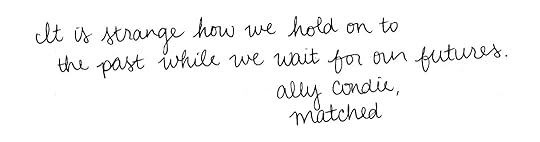 It is strange how we hold on to
the past while we wait for our futures.
ally condie,
matched